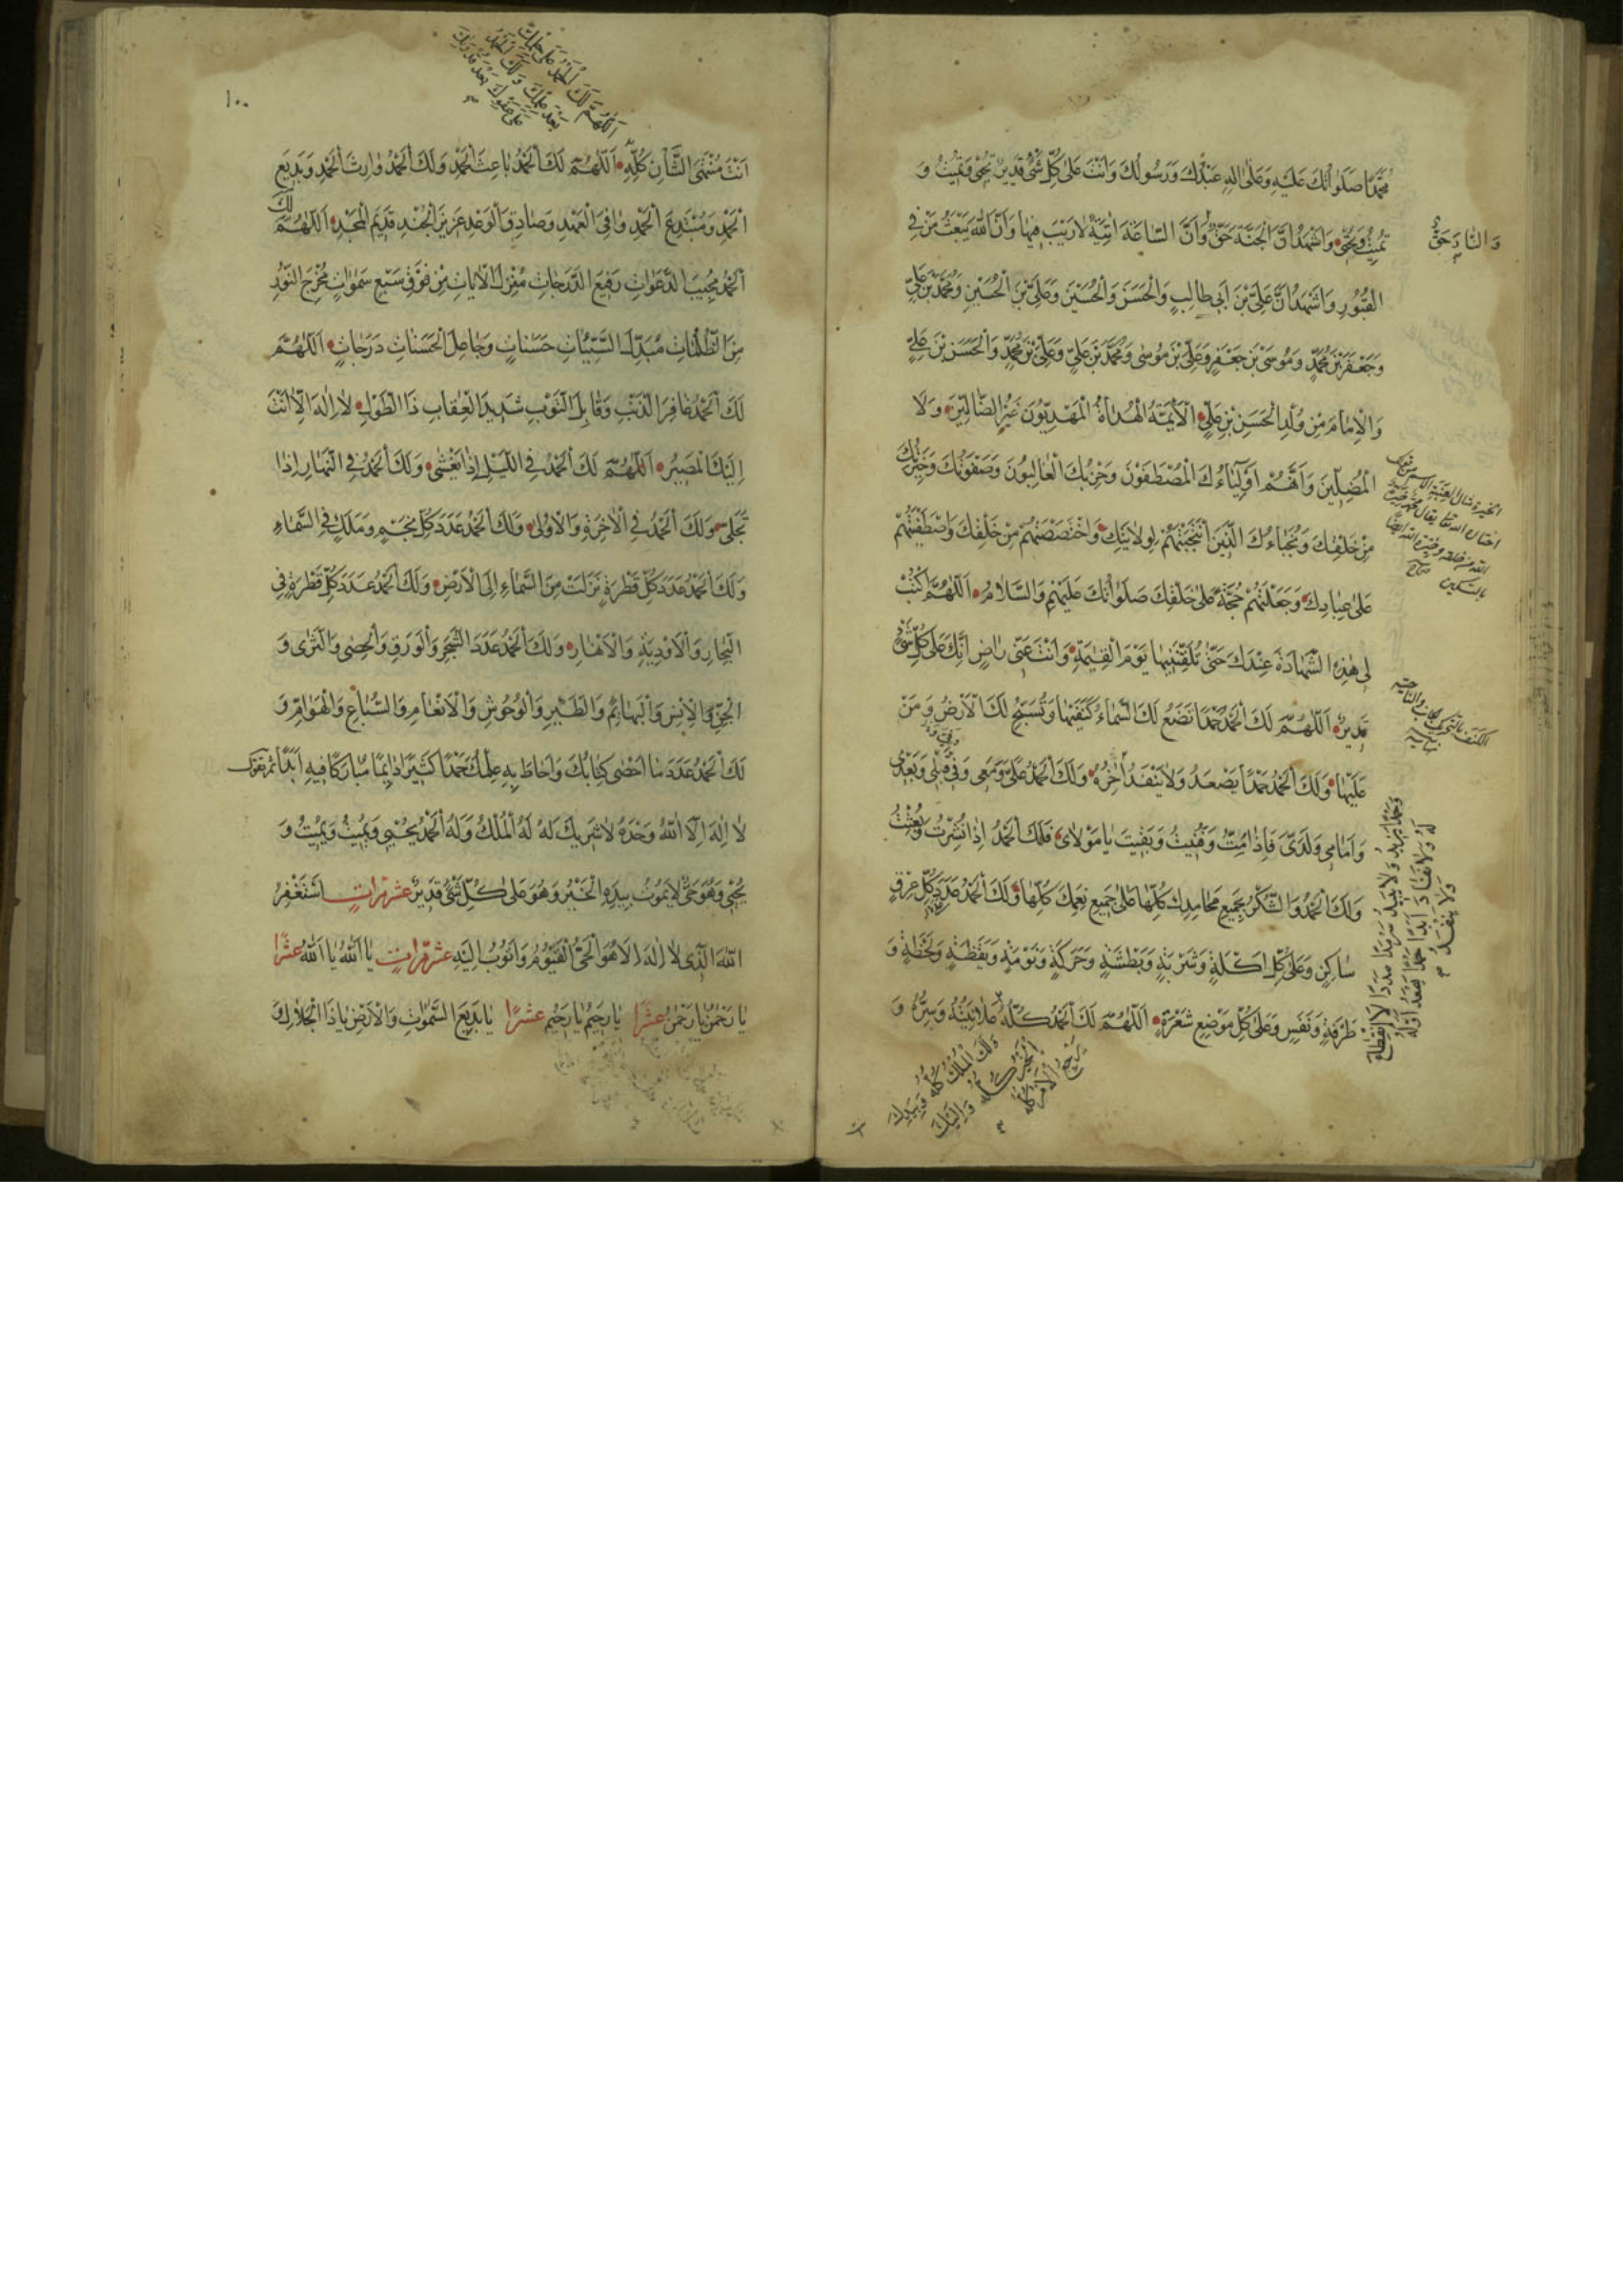 مُحَمَّدًا صَلَوٰاتُكَ عَلَيْهِ وَعَلىٰ اٰلِهِ عَبْدُكَ وَرَسُولُكَ وَاَنْتَ عَلىٰ كُلِّ شَىْءٍ قَدِيرٌ تُحْيى وَتُمِيتُ وَ
تُمِيتُ وَتُحْيى وَاَشْهَدُ اَنَّ الْجَنَّةَ حَقٌّ وَاَنَّ السّٰاعَةَ اٰتِيَةٌ لٰا رَيْبَ فِيهٰا وَاَنَّ اللّٰهَ يَبْعَثُ مَنْ فِى
وَ النّٰارَ حَقٌّ
الْقُبُورِ وَاَشْهَدُ اَنَّ عَلِىَّ بْنَ اَبى طٰالِبٍ وَالْحَسَنَ وَالْحُسَيْنَ وَعَلِىَّ بْنَ الْحُسَيْنِ وَمُحَمَّدَ بْنَ عَلِىٍّ
وَجَعْفَرَ بْنَ مُحَمَّدٍ وَمُوسَى بْنَ جَعْفَرٍ وَعَلِىَّ بْنَ مُوسٰى وَمُحَمَّدَ بْنَ عَلِىٍّ وَعَلِىَّ بْنَ مُحَمَّدٍ وَالْحَسَنَ بْنَ عَلِىٍّ
وَالْاِمٰامَ مِنْ وُلْدِ الْحَسَنِ بْنِ عَلِىٍّ الْاَئِمَّةُ الْهُدٰاةُ الْمَهْدِيُّونَ غَيْرُ الضّٰالّينَ وَلَا
الْمُضِلّينَ وَاَنَّهُمْ اَوْلِيٰاءُكَ الْمُصْطَفَوْنَ وَحِزْبُكَ الْغٰالِبُونَ وَصَفْوَتُكَ وَخِيَرَتُكَ
مِنْ خَلْقِكَ وَنُجَبٰاءُكَ الَّذِينَ انْتَجَبْتَهُمْ لِوِلٰايَتِكَ وَاخْتَصَصْتَهُمْ مِنْ خَلْقِكَ وَاصْطَفَيْتَهُمْ
عَلىٰ عِبٰادِكَ وَجَعَلْتَهُمْ حُجَّةً عَلىٰ خَلْقِكَ صَلَوٰاتُكَ عَلَيْهِمْ وَالسَّلٰامُ اَللّٰهُمَّ اكْتُبْ
لى هٰذِهِ الشَّهٰادَةَ عِنْدَكَ حَتّٰى تُلَقِّنَنِيهٰا يَوْمَ الْقِيٰمَةِ وَاَنْتَ عَنّى رٰاضٍ اِنَّكَ عَلىٰ كُلِّ شَىْءٍ
قَدِيرٌ اَللّٰهُمَّ لَكَ الْحَمْدُ حَمْدًا تَضَعُ لَكَ السَّمٰاءُ كَنَفَيْهٰا وَتُسَبِّحُ لَكَ الْاَرْضُ وَ مَنْ
عَلَيْهٰا وَلَكَ الْحَمْدُ حَمْدًا يَصْعَدُ وَلٰا يَنْفَدُ اٰخِرُهُ وَلَكَ الْحَمْدُ عَلَىَّ وَمَعى وَفِىَّ وَقَبْلى وَبَعْدى
وَاَمٰامى وَلَدَىَّ فَاِذٰا مِتُّ وَفَنِيتُ وَبَقِيتَ يٰا مَوْلٰاىَ فَلَكَ الْحَمْدُ اِذٰا نُشِرْتُ وَبُعِثْتُ
وَلَكَ الْحَمْدُ وَالشُّكْرُ بِجَمِيعِ مَحٰامِدِكَ كُلِّهٰا عَلىٰ جَمِيعِ نِعَمِكَ كُلِّهٰا وَلَكَ الْحَمْدُ عَدَدَ كُلِّ عِرْقٍ
سٰاكِنٍ وَعَلىٰ كُلِّ اَكْلَةٍ وَشَرْبَةٍ وَبَطْشَةٍ وَحَرَكَةٍ وَنَوْمَةٍ وَيَقْظَةٍ وَلَحْظَةٍ وَ
طَرْفَةٍ وَنَفَسٍ وَعَلىٰ كُلِّ مَوْضِعِ شَعْرَةٍ اَللّٰهُمَّ لَكَ الْحَمْدُ كُلُّهُ عَلٰانِيَتُهُ وَسِرُّهُ وَ
وَلَكَ الْمُلْكُ كُلُّهُ وَبِيَدِكَ
الْخَيْرُ كُلُّهُ وَاِلَيْكَ
يَرْجِعُ الْاَمْرُ كُلُّهُ
١٠٠
اَللّٰهُمَّ لَكَ الْحَمْدُ عَلىٰ حِلْمِكَ
بَعْدَ عِلْمِكَ وَلَكَ الْحَمْدُ
عَلىٰ عَفْوِكَ بَعْدَ قُدْرَتِكَ
اَنْتَ مُنْتَهَى الشَّأْنِ كُلِّهِ اَللّٰهُمَّ لَكَ الْحَمْدُ بٰاعِثَ الْحَمْدِ وَلَكَ الْحَمْدُ وٰارِثَ الْحَمْدِ وَبَدِيعَ
الْحَمْدِ وَمُبْتَدِعَ الْحَمْدِ وٰافِىَ الْعَهْدِ وَصٰادِقَ الْوَعْدِ عَزِيزَ الْجُنْدِ قَدِيمَ الْمَجْدِ اَللّٰهُمَّ لَكَ
الْحَمْدُ مُجِيبَ الدَّعَوٰاتِ رَفِيعَ الدَّرَجٰاتِ مُنْزِلَ الْاٰيٰاتِ مِنْ فَوْقِ سَبْعِ سَمٰوٰاتٍ مُخْرِجَ النُّورِ
مِنَ الظُّلُمٰاتِ مُبَدِّلَ السَّيِّئٰاتِ حَسَنٰاتٍ وَجٰاعِلَ الْحَسَنٰاتِ دَرَجٰاتٍ اَللّٰهُمَّ
لَكَ الْحَمْدُ غٰافِرَ الذَّنْبِ وَقٰابِلَ التَّوْبِ شَدِيدَ الْعِقٰابِ ذَا الطَّوْلِ لٰا اِلٰهَ اِلّٰا اَنْتَ
اِلَيْكَ الْمَصِيرُ اَللّٰهُمَّ لَكَ الْحَمْدُ فِى اللَّيْلِ اِذٰا يَغْشٰى وَلَكَ الْحَمْدُ فِى النَّهٰارِ اِذٰا
تَجَلّٰى وَلَكَ الْحَمْدُ فِى الْاٰخِرَةِ وَالْاُولٰى وَلَكَ الْحَمْدُ عَدَدَ كُلِّ نَجْمٍ وَمَلَكٍ فِى السَّمٰاءِ
وَلَكَ الْحَمْدُ عَدَدَ كُلِّ قَطْرَةٍ نَزَلَتْ مِنَ السَّمٰاءِ اِلَى الْاَرْضِ وَلَكَ الْحَمْدُ عَدَدَ كُلِّ قَطْرَةٍ فِى
الْبِحٰارِ وَالْاَوْدِيَةِ وَالْاَنْهٰارِ وَلَكَ الْحَمْدُ عَدَدَ الشَّجَرِ وَالْوَرَقِ وَالْحَصٰى وَالثَّرٰى وَ
الْجِنِّ وَالْاِنْسِ وَالْبَهٰائِمِ وَالطَّيْرِ وَالْوُحُوشِ وَالْاَنْعٰامِ وَالسِّبٰاعِ وَالْهَوٰامِّ وَ
لَكَ الْحَمْدُ عَدَدَ مٰا اَحْصٰى كِتٰابُكَ وَاَحٰاطَ بِهِ عِلْمُكَ حَمْدًا كَثِيرًا دٰائِمًا مُبٰارَكًا فِيهِ اَبَدًا ثم تقول
لٰا اِلٰهَ اِلَّا اللّٰهُ وَحْدَهُ لٰا شَرِيكَ لَهُ لَهُ الْمُلْكُ وَلَهُ الْحَمْدُ يُحْيِى وَيُمِيتُ وَيُمِيتُ وَ
يُحْيِى وَهُوَ حَىٌّ لٰا يَمُوتُ بِيَدِهِ الْخَيْرُ وَهُوَ عَلىٰ كُلِّ شَىْءٍ قَدِيرٌ عشر مرات اَسْتَغْفِرُ
اللّٰهَ الَّذى لٰا اِلٰهَ اِلّٰا هُوَ الْحَىُّ الْقَيُّومُ وَاَتُوبُ اِلَيْهِ عشر مرات يٰا اَللّٰهُ يٰا اَللّٰهُ عشرًا
يٰا رَحْمٰنُ يٰا رَحْمٰنُ عشرًا يٰا رَحِيمُ يٰا رَحِيمُ عشرًا يٰا بَدِيعَ السَّمٰوٰاتِ وَالْاَرْضِ يٰا ذَا الْجَلٰالِ وَ